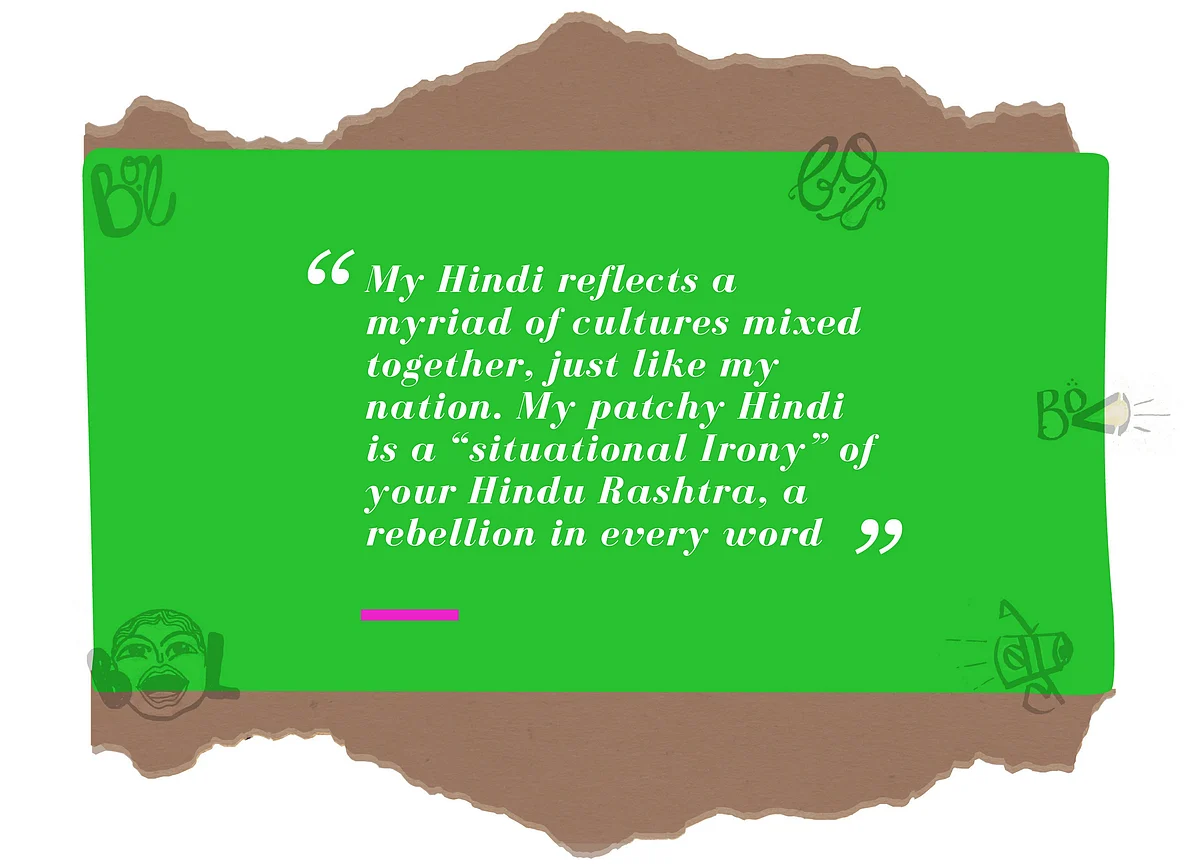 Bol
Bol
“ My Hindi reflects a
myriad of cultures mixed
together, just like my
nation. My patchy Hindi
is a “situational Irony” of
your Hindu Rashtra, a
rebellion in every word ”
BOL